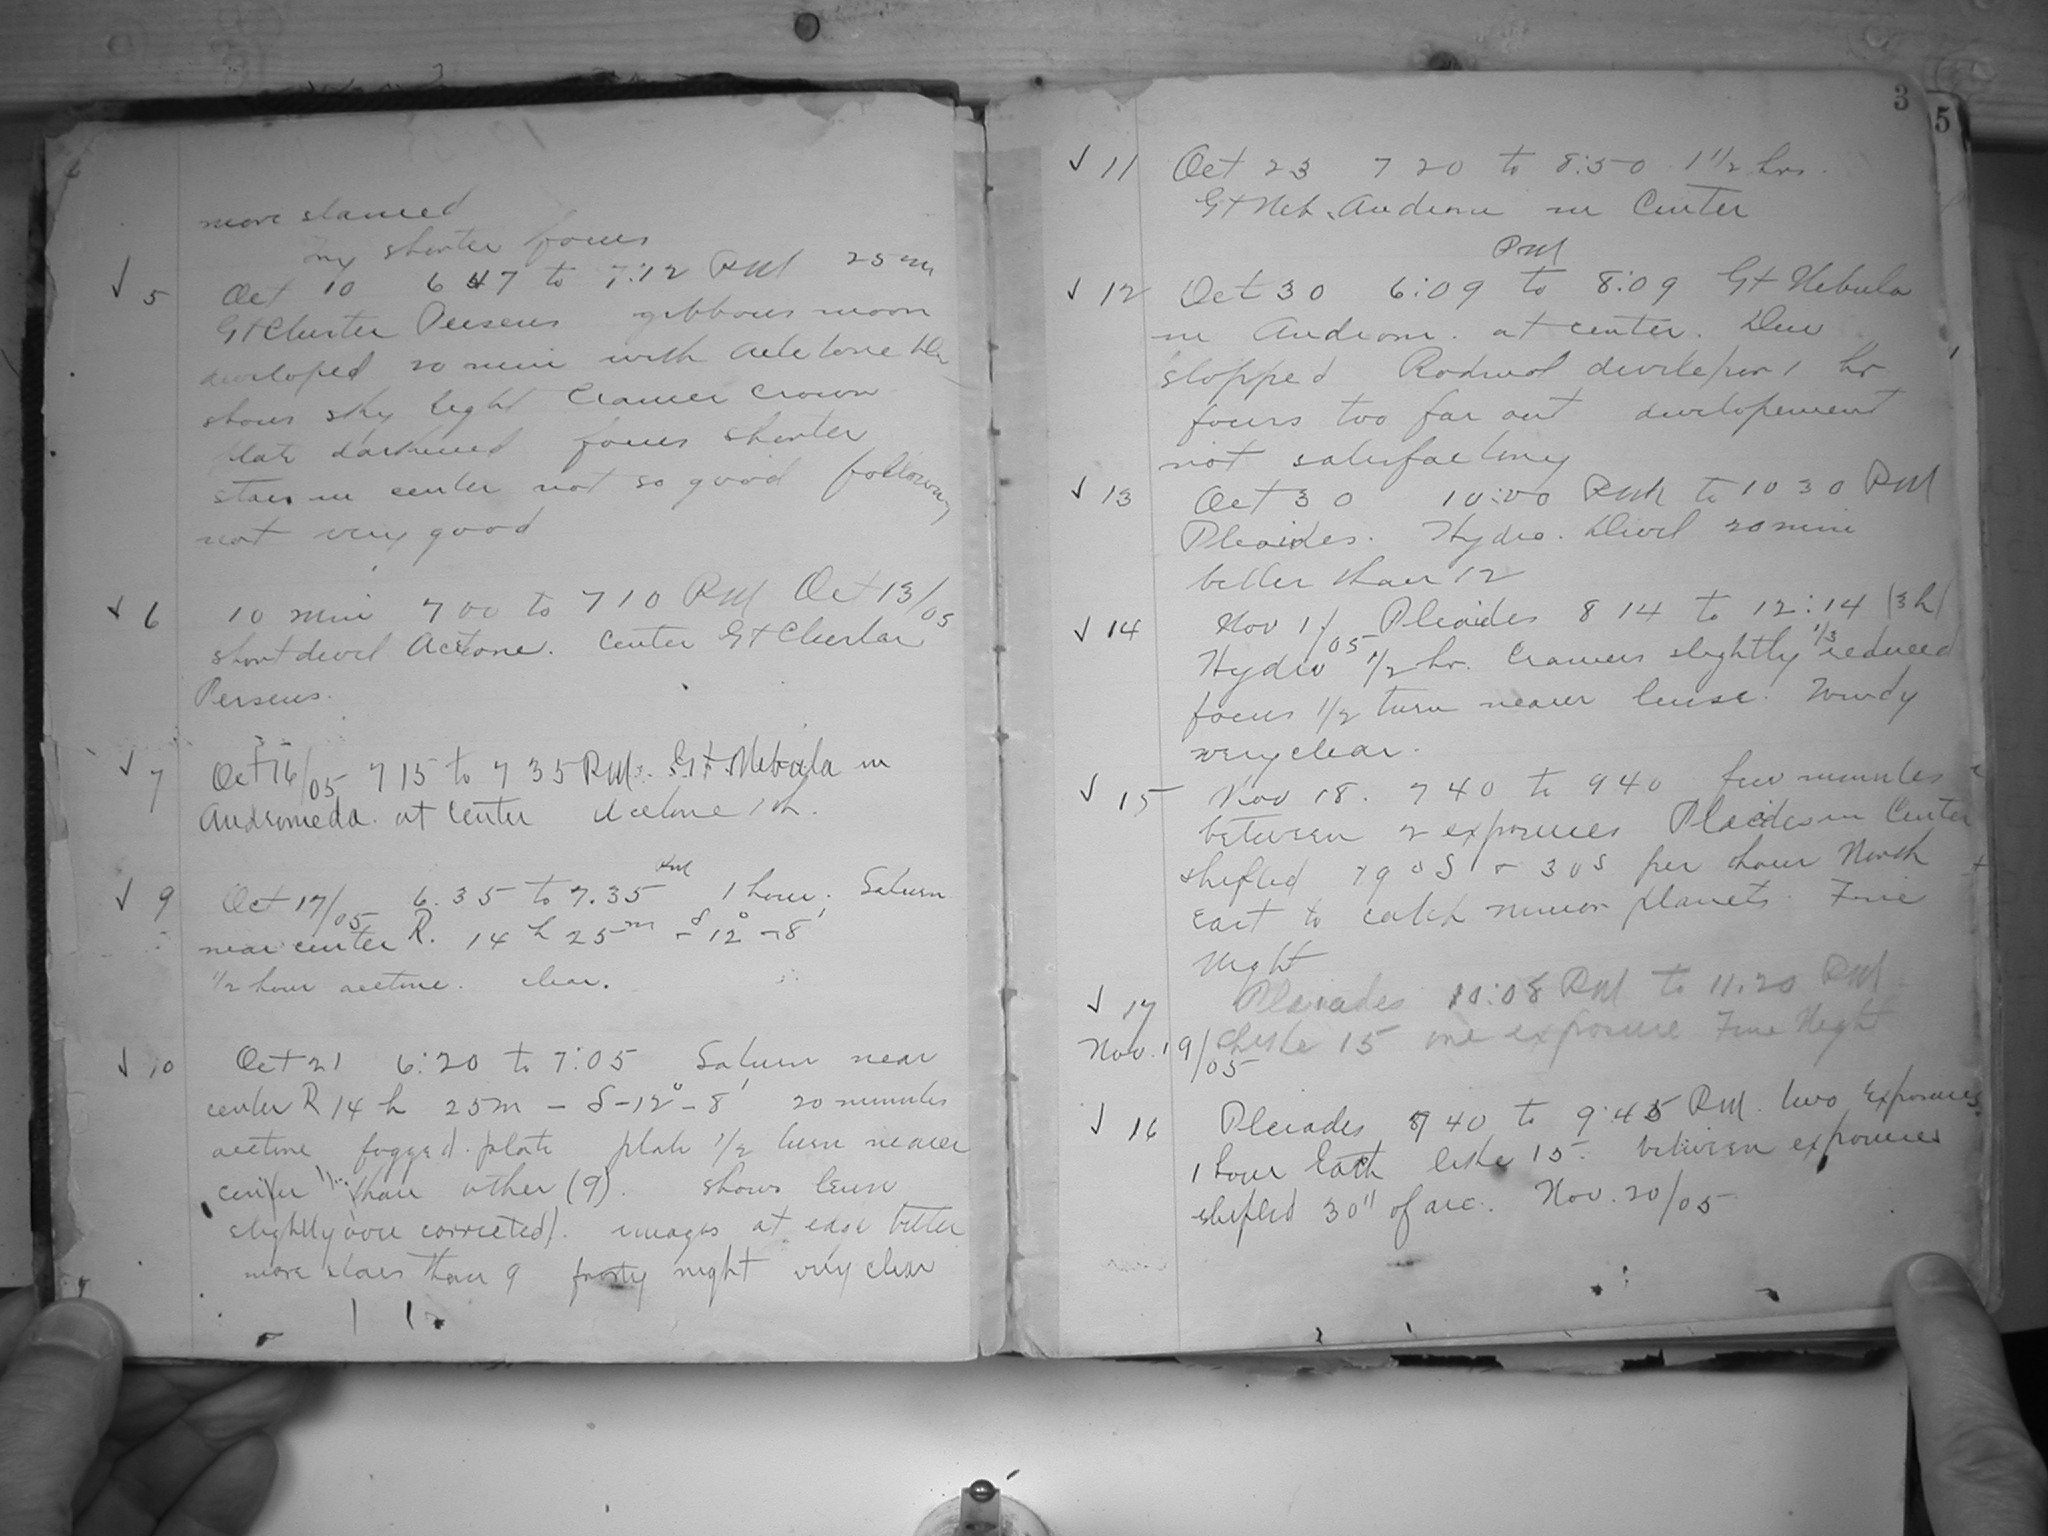 more stars
try shorter focus
√ 5 Oct 10 6 47 to 7:12 PM 25 m
Gt Cluster Perseus gibbous moon
developed 20 min with Acetone
shows sky light Cramer Crown
plate darkened focus shorter
stars in center not so good following
not very good
√ 6 10 min 7 00 to 7 10 PM Oct 13/05
short devel Acetone. Center Gt Cluster
Perseus.
√ 7 Oct 16/05 7 15 to 7 35 PM. Gt Nebula in
Andromeda at Center Acetone 1 h.
√ 9 Oct 17/05 6.35 to 7.35 PM 1 hour. Saturn
near center R. 14 h 25 m - δ 12° - 8'
1/2 hour acetone. clear.
√ 10 Oct 21 6:20 to 7:05 Saturn near
center R 14 h 25m - δ - 12° - 8' 20 minutes
acetone fogged plate plate 1/2 turn nearer
center than other (9). shows lens
slightly over corrected). images at edge better
more stars than 9 frosty night very clear
3
5
√ 11 Oct 23 7 20 to 8:50 1 1/2 hrs.
Gt Neb. Androm in Center
√ 12 Oct 30 6:09 PM to 8:09 Gt Nebula
in Androm. at center. Dew
stopped Rodinal developer 1 hr
focus too far out developement
not satisfactory
√ 13 Oct 30 10:00 PM to 10 30 PM
Pleaides. Hydro. Devel 20 min
better than 12
√ 14 Nov 1/05 Pleiades 8 14 to 12:14 (3 h)
Hydro 1/2 hr. Cramers slightly 1/3 reduced
focus 1/2 turn nearer lense. Windy
very clear.
√ 15 Nov 18. 7 40 to 9 40 few minutes
between 2 exposures Pleiades in Center
shifted 30 S per hour North
East to catch minor planets. Fine
Night
√ 17 Pleiades 10:08 PM to 11.20 PM
Nov. 19/05 like 15 one exposure Fine Night
√ 16 Pleiades 7 40 to 9:45 PM. two Exposures
1 hour Each like 15. between exposures
shifted 30" of arc. Nov. 20/05